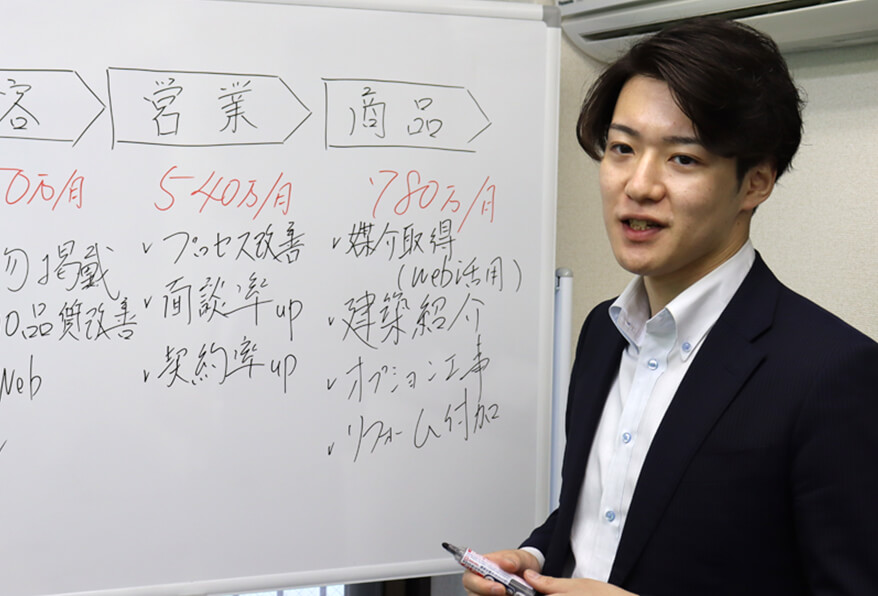 客
0万/月
掲載
品質改善
Web
営業
540万/月
✓プロセス改善
✓面談率up
✓契約率up
商品
780万/月
✓媒介取得
(web活用)
✓建築紹介
✓オプション工事
✓リフォーム付加